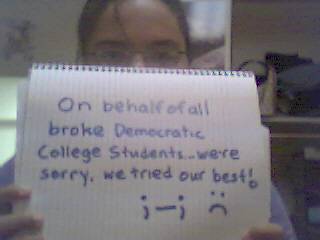 On behalf of all
broke Democratic
College Students...we're
sorry, we tried our best!
;-; :(